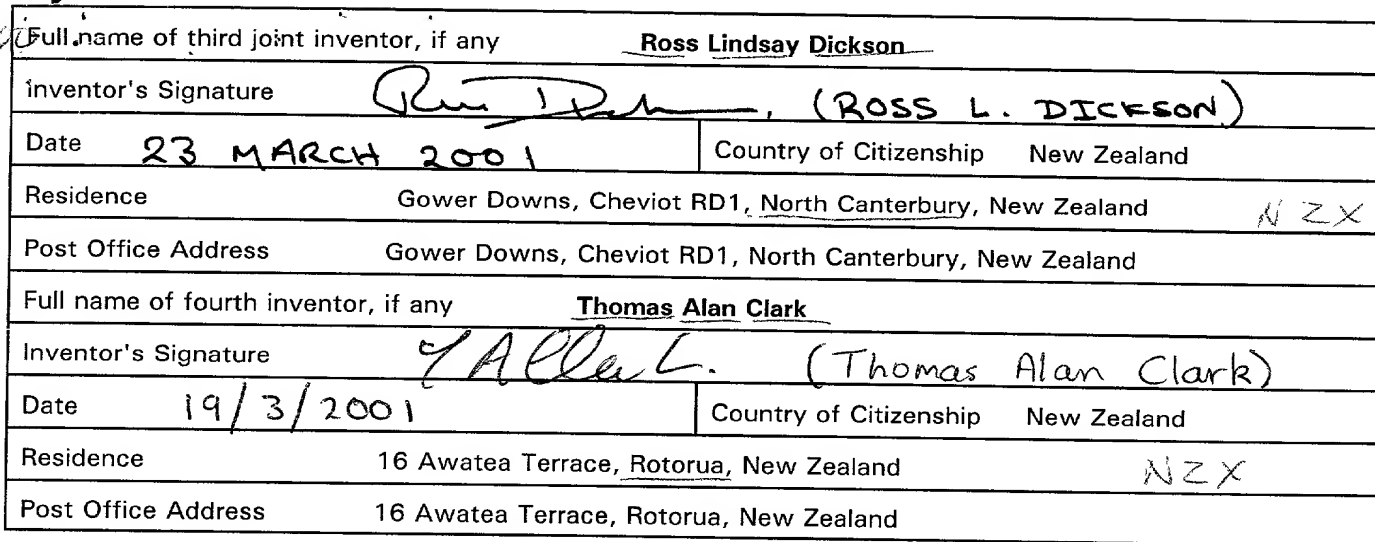 Full name of third joint inventor, if any Ross Lindsay Dickson
Inventor's Signature (ROSS L. DICKSON)
Date 23 MARCH 2001 Country of Citizenship New Zealand
Residence Gower Downs, Cheviot RD1, North Canterbury, New Zealand NZX
Post Office Address Gower Downs, Cheviot RD1, North Canterbury, New Zealand
Full name of fourth inventor, if any Thomas Alan Clark
Inventor's Signature (Thomas Alan Clark)
Date 19/3/2001 Country of Citizenship New Zealand
Residence 16 Awatea Terrace, Rotorua, New Zealand NZX
Post Office Address 16 Awatea Terrace, Rotorua, New Zealand